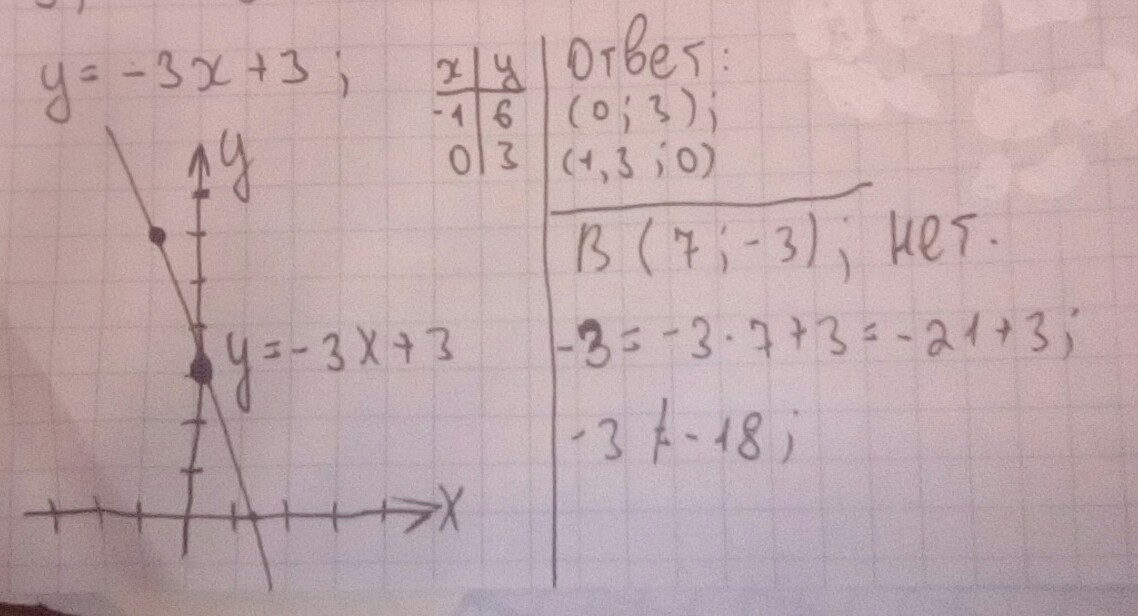 y = -3x + 3 ;
x | y
-1 | 6
0 | 3
y
y = -3x + 3
x
Ответ:
(0 ; 3) ;
(1,3 ; 0)
B (7 ; -3) ; нет.
-3 = -3 · 7 + 3 = -21 + 3 ;
-3 ≠ -18 ;